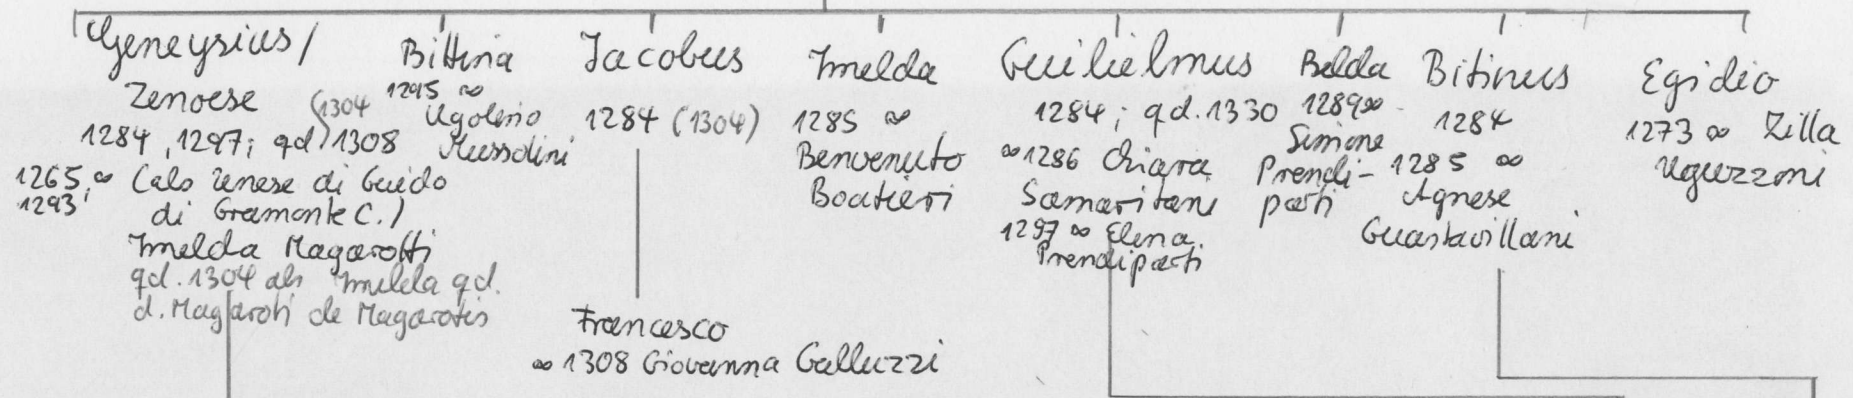 Geneysius/
Zenoese (1304
1284, 1297; qd) 1308
1265, ∞ Calo
1293; di Guido
di Gramonte C.)
Imelda Magarotti
qd. 1304 als Imelda qd.
d. Magaroti de Magarotis
Bittina
1295 ∞
Ugolino
Mussolini
Jacobus
1284 (1304)
Francesco
∞ 1308 Giovanna Galluzzi
Imelda
1285 ∞
Benvenuto
Boatieri
Guilielmus
1284; qd. 1330
∞ 1286 Chiara
Samaritani
1297 ∞ Elena
Prendiparti
Belda
1289 ∞
Simone
Prendi-
parti
Bitinus
1284
1285 ∞
Agnese
Guastavillani
Egidio
1273 ∞ Zilla
Uguzzoni